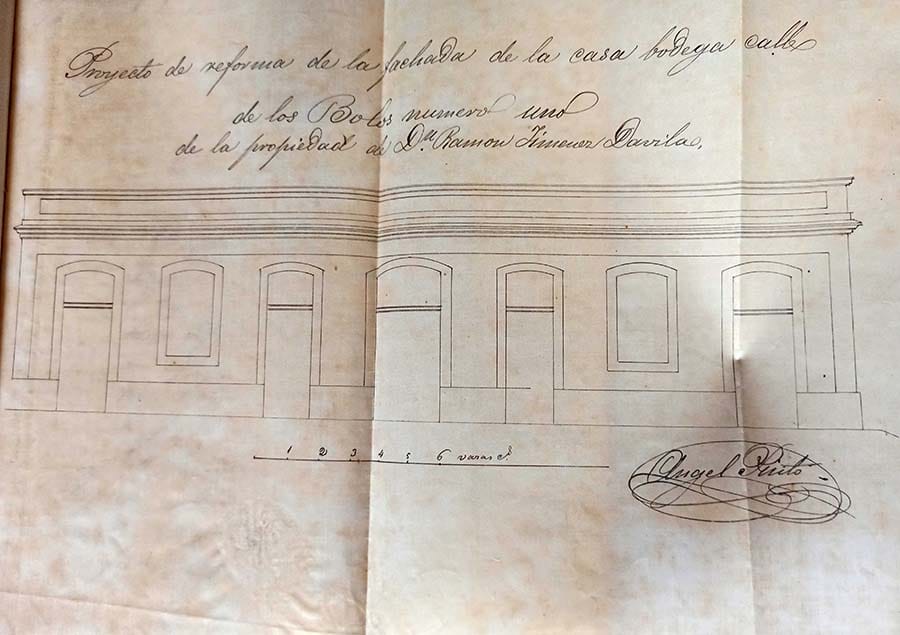 Proyecto de reforma de la fachada de la casa bodega calle
de los Bolos numero uno
de la propiedad de Dn. Ramon Jimenez Davila.
1 2 3 4 5 6 varas
Angel Pinto